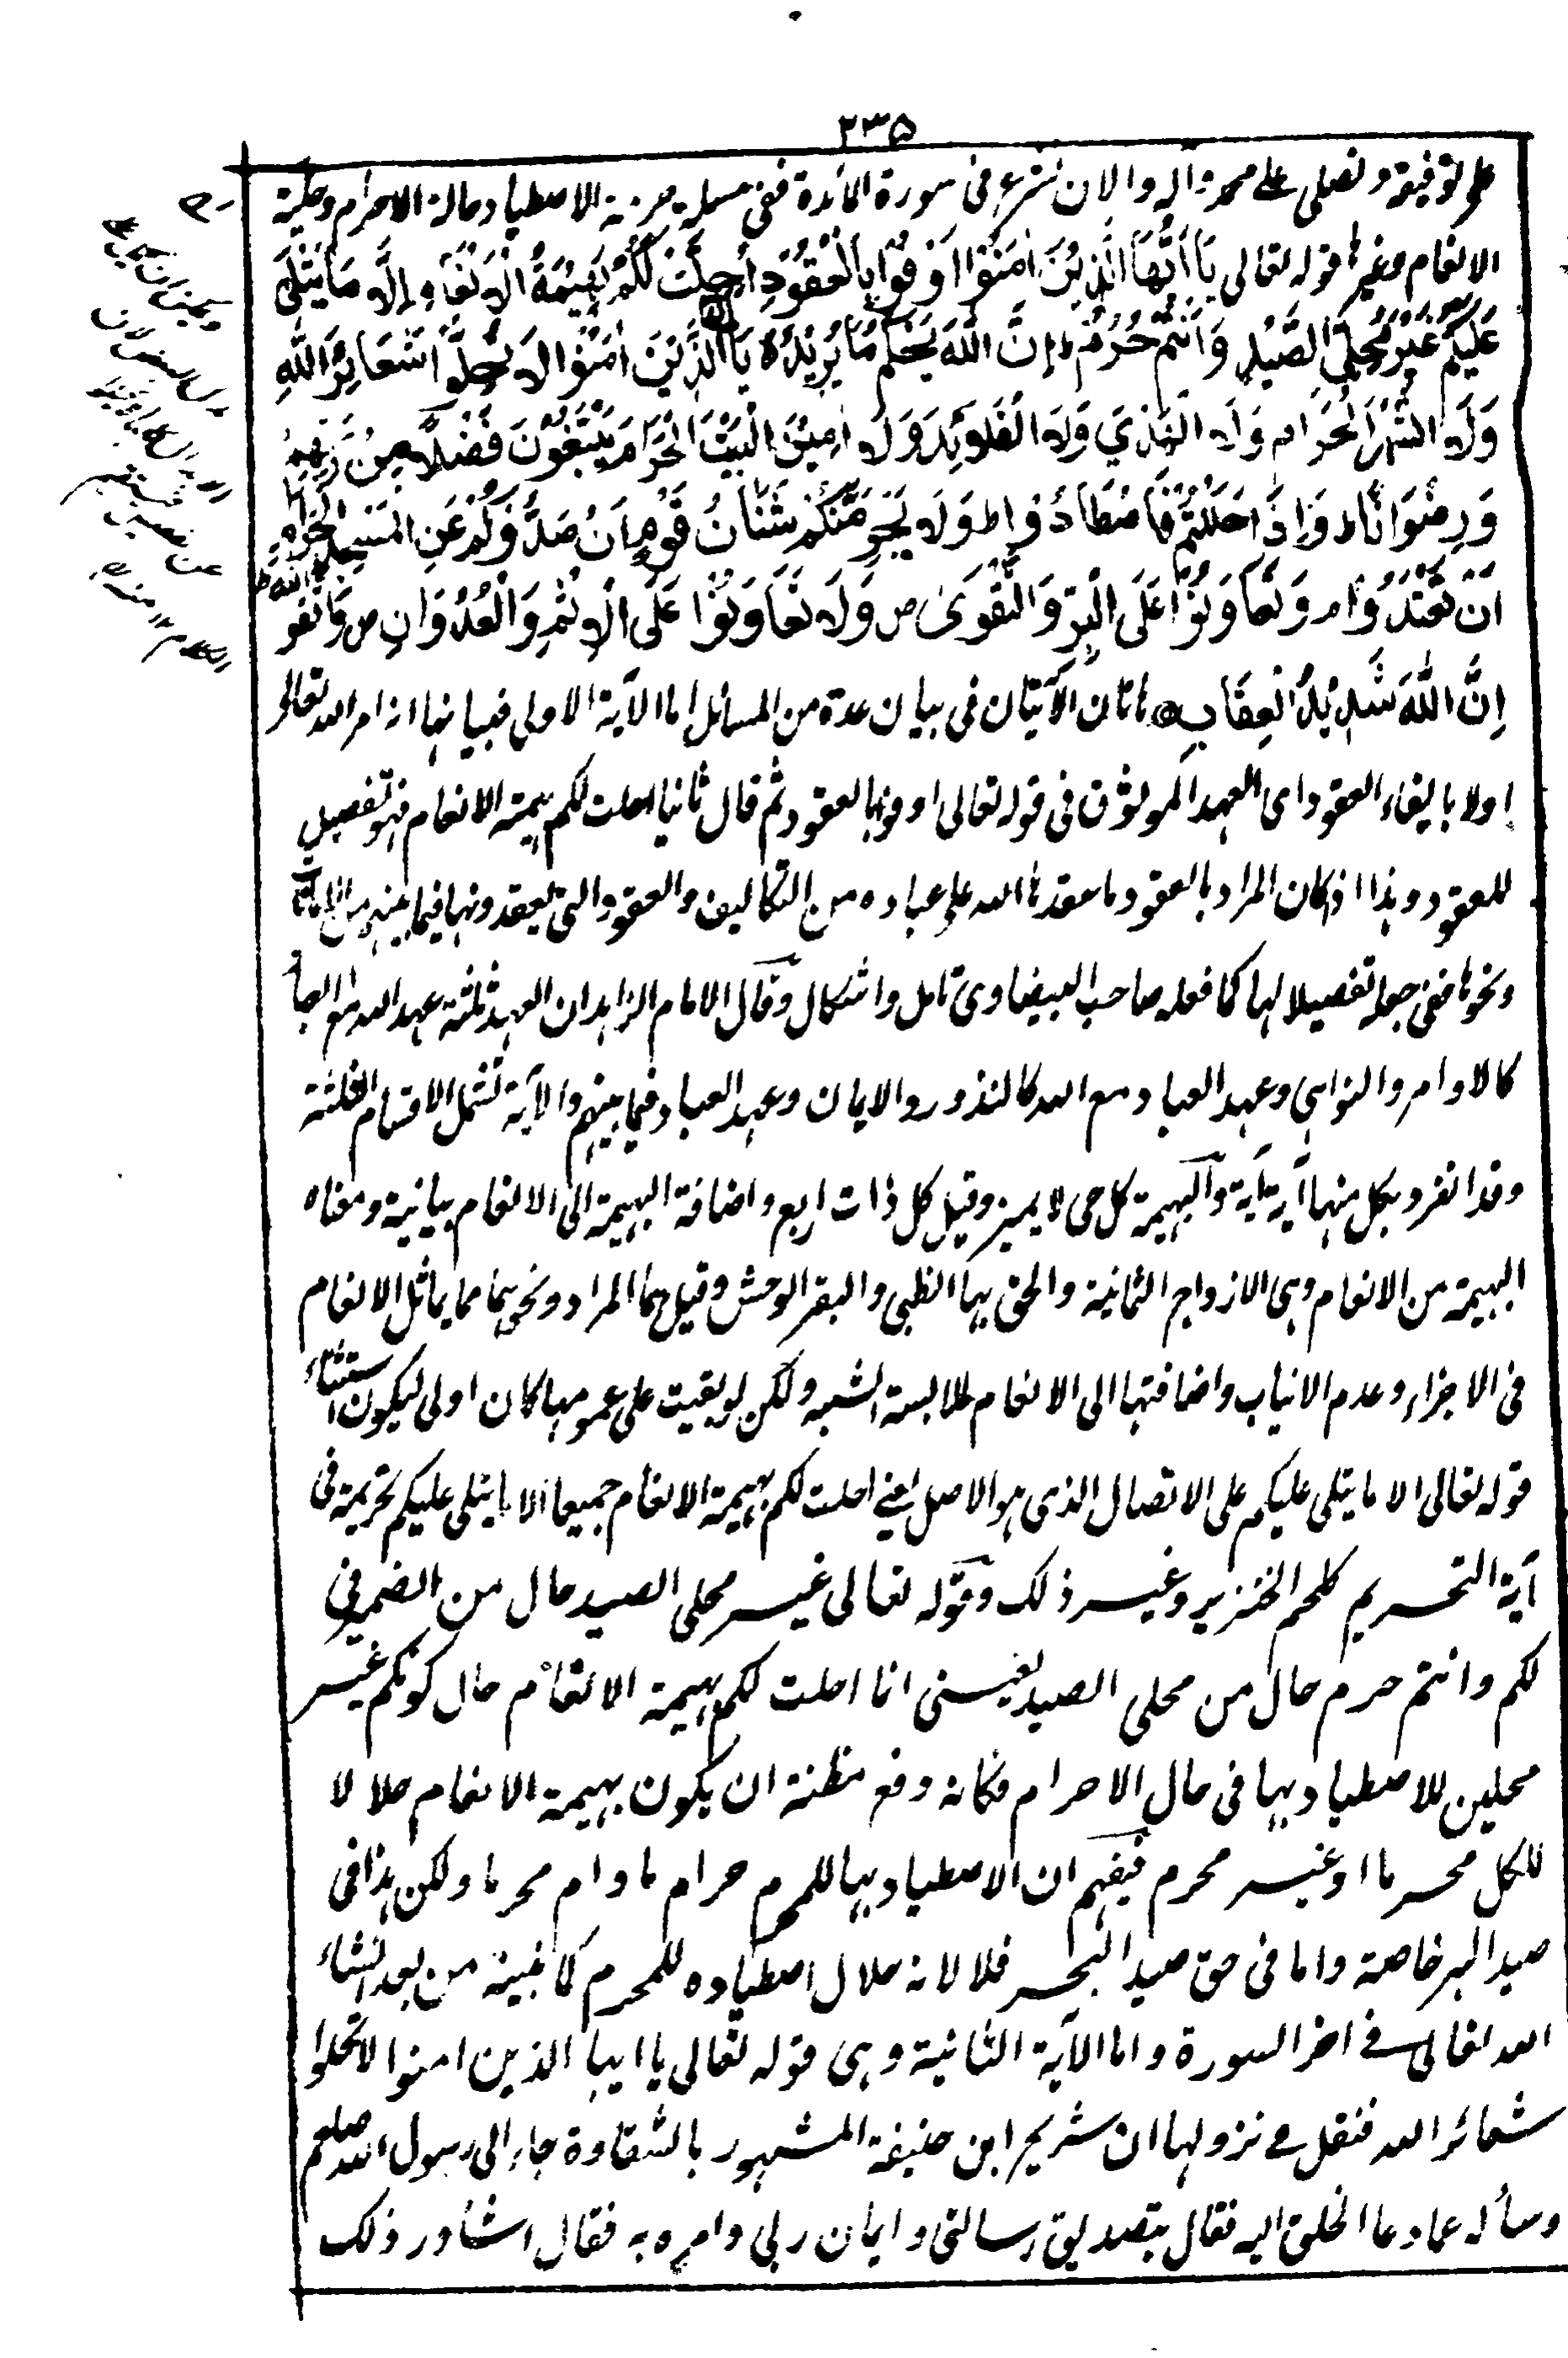 ٢٣٥
على توفيقه ونصلى على محمد وآله والان نشرع فى سورة المائدة ففى مسئلة حرمة الاصطياد حالة الاحرام وحلية
الانعام وغيرها قوله تعالى يَا أَيُّهَا الَّذِيْنَ اٰمَنُوْا اَوْفُوْا بِالْعُقُوْدِ اُحِلَّتْ لَكُمْ بَهِيْمَةُ الْاَنْعَامِ اِلَّا مَا يُتْلٰى
عَلَيْكُمْ غَيْرَ مُحِلِّى الصَّيْدِ وَاَنْتُمْ حُرُمٌ ط اِنَّ اللّٰهَ يَحْكُمُ مَا يُرِيْدُ ه يَا اَيُّهَا الَّذِيْنَ اٰمَنُوْا لَا تُحِلُّوْا شَعَائِرَ اللّٰهِ
وَلَا الشَّهْرَ الْحَرَامَ وَلَا الْهَدْيَ وَلَا الْقَلَائِدَ وَلَا اٰمِّيْنَ الْبَيْتَ الْحَرَامَ يَبْتَغُوْنَ فَضْلًا مِنْ رَّبِّهِمْ
وَرِضْوَانًا ط وَاِذَا حَلَلْتُمْ فَاصْطَادُوْا ط وَلَا يَجْرِمَنَّكُمْ شَنَاٰنُ قَوْمٍ اَنْ صَدُّوْكُمْ عَنِ الْمَسْجِدِ الْحَرَامِ
اَنْ تَعْتَدُوْا م وَتَعَاوَنُوْا عَلَى الْبِرِّ وَالتَّقْوٰى ص وَلَا تَعَاوَنُوْا عَلَى الْاِثْمِ وَالْعُدْوَانِ ص وَاتَّقُوا اللّٰهَ ط
اِنَّ اللّٰهَ شَدِيْدُ الْعِقَابِ ه هاتان الآيتان فى بيان عدة من المسائل اما الآية الاولى فبيانها انه امر الله تعالى
اولا بايفاء العقود اى العهد الموثوق فى قوله تعالى اوفوا بالعقود ثم قال ثانيا احلت لكم بهيمة الانعام فهو تفصيل
للعقود وهذا اذ كان المراد بالعقود ما عقدها الله على عباده من التكاليف والعقود التى يعقدونها فيما بينهم من الامانات
ونحوها ففى جعله تفصيلا لها كما فعله صاحب البيضاوى تامل واشكال وقال الامام الزاهد ان العهد ثلثة عهد الله مع العباد
كالاوامر والنواهى وعهد العباد مع الله كالنذور والايمان وعهد العباد فيما بينهم والآية تشمل الاقسام الثلثة
وقد انفرد بكل منها آية آية والبهيمة كل حى لا يميز وقيل كل ذات اربع واضافة البهيمة الى الانعام بيانية ومعناه
البهيمة من الانعام وهى الازواج الثمانية والحق بها الظبى والبقر الوحش وقيل هما المراد ونحوهما مما يماثل الانعام
فى الاجزاء وعدم الانياب واضافتها الى الانعام لملابسة الشبه ولكن لو بقيت على عمومها كان اولى ليكون استثناء
قوله تعالى الا ما يتلى عليكم على الاتصال الذى هو الاصل يعنى احلت لكم بهيمة الانعام جميعا الا ما يتلى عليكم تحريمه فى
آية التحريم كلحم الخنزير وغير ذلك وقوله تعالى غير محلى الصيد حال من الضمير فى
لكم وانتم حرم حال من محلى الصيد يعنى انا احلت لكم بهيمة الانعام حال كونكم غير
محلين للاصطياد بها فى حال الاحرام فكانه دفع مظنة ان يكون بهيمة الانعام حلالا
للكل محرما او غير محرم فيفهم ان الاصطياد بها للمحرم حرام ما دام محرما ولكن هذا فى
صيد البر خاصة واما فى حق صيد البحر فلا لانه حلال اصطياده للمحرم كما نبينه من بعد انشاء
الله تعالى فى اخر السورة واما الآية الثانية وهى قوله تعالى يا ايها الذين امنوا لا تحلوا
شعائر الله فنقل فى نزولها ان شريح ابن ضبيعة المشهور بالشقاوة جاء الى رسول الله صلعم
وسأله عما دعا الخلق اليه فقال بتصديق رسالتى وايمان ربى وامره به فقال اشاور ذلك